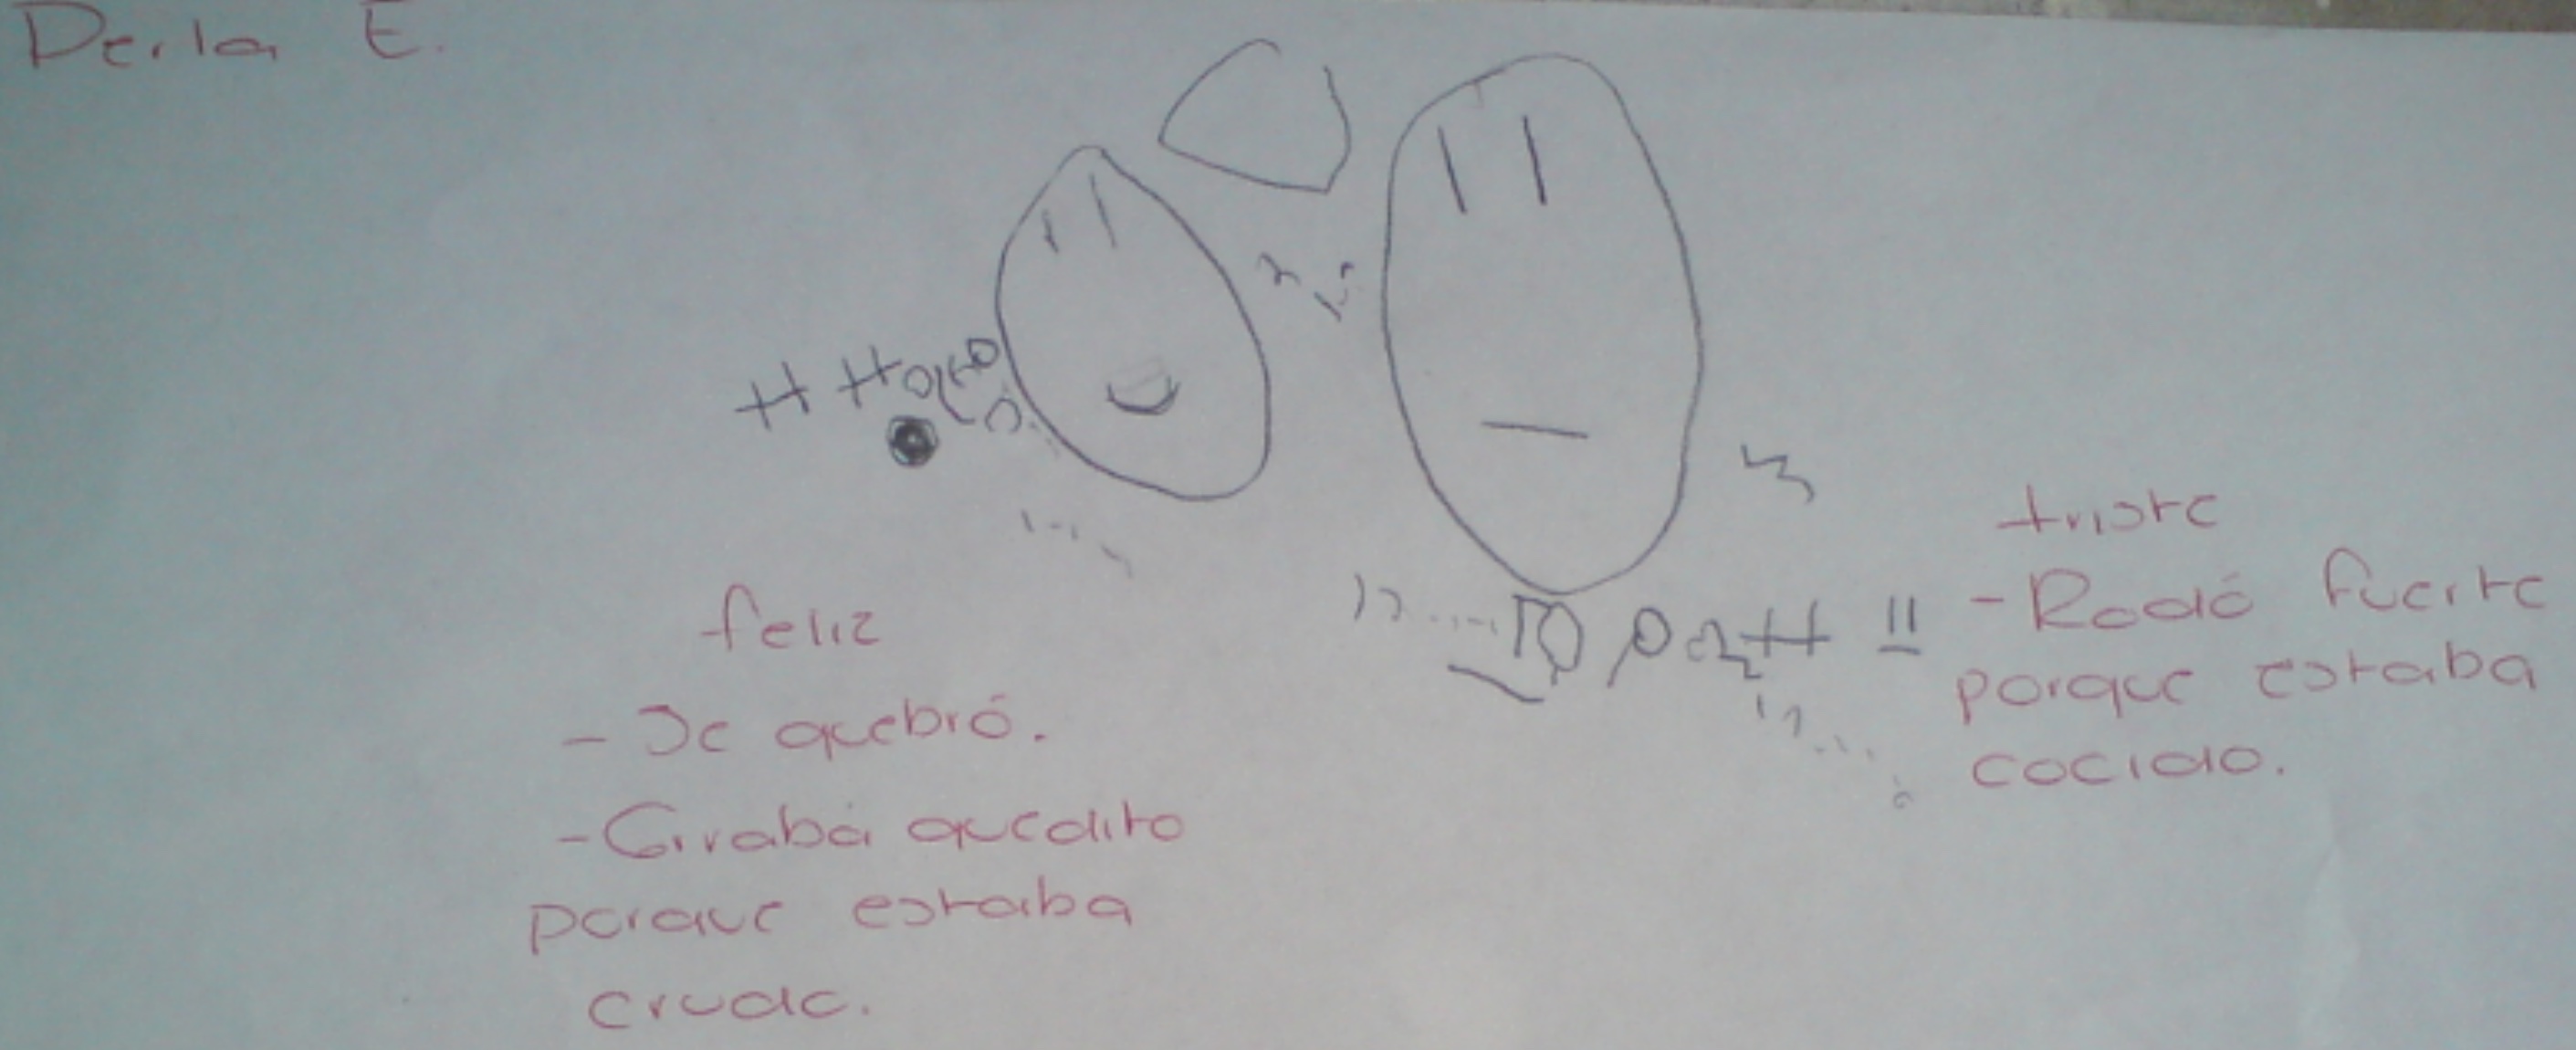 Derla E.
feliz
- Se quebró.
- Giraba quedito
porque estaba
crudo.
triste
- Rodó fuerte
porque estaba
cocido.